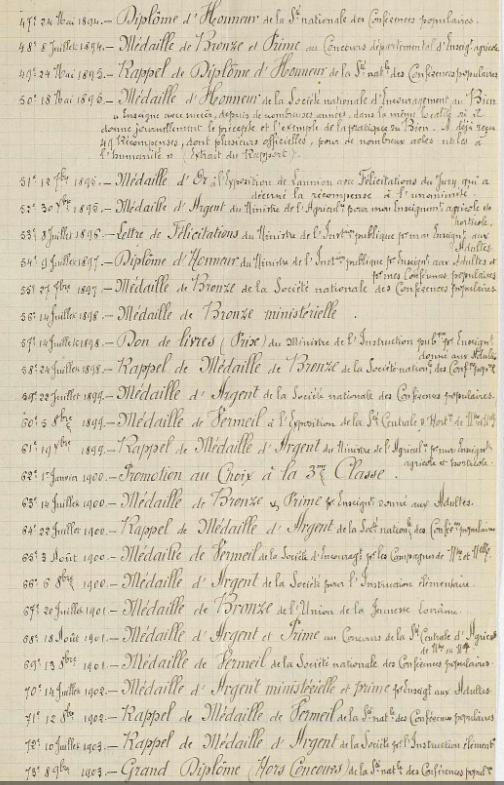 47° 24 Mai 1894.- Diplôme d'Honneur de la Sté nationale des Conférences populaires.
48° 8 Juillet 1894.- Médaille de Bronze et Prime au Concours départemental d'Enseigt agricole
49° 24 Mai 1895.- Rappel de Diplôme d'Honneur de la Sté natle des Conférences populaires
50° 18 Mai 1896.- Médaille d'Honneur de la Société nationale d'Encouragement au Bien
" Enseigne avec succès, depuis de nombreuses années, dans la même localité où il
donne journellement le précepte et l'exemple de la pratique du Bien. A déjà reçu
49 Récompenses, dont plusieurs officielles, pour de nombreux actes utiles à
l'humanité " (Extrait du Rapport).
51° 12 7bre 1895.- Médaille d'Or à l'Exposition de Lannion avec Félicitations du Jury, qui a
décerné la récompense à l'unanimité.
52° 30 1895.- Médaille d'Argent du Ministre de l'Agriculre pour mon Enseignemt agricole et
horticole.
53° 8 Juillet 1896.- Lettre de Félicitations du Ministre de l'Instron publique pr mon Enseigt aux
Adultes.
54° 9 Juillet 1897.- Diplôme d'Honneur du Ministre de l'Instron publique pr Enseigt aux Adultes et
pr mes Conférences populaires
55° 27 7bre 1897.- Médaille de Bronze de la Société nationale des Conférences populaires.
56° 14 Juillet 1898.- Médaille de Bronze ministérielle.
57° 14 Juillet 1898.- Don de livres (Prix) du Ministre de l'Instruction pubque pr Enseignt
donné aux Adultes
58° 24 Juillet 1898.- Rappel de Médaille de Bronze de la Société nationle des Confces popres
59° 22 Juillet 1899.- Médaille d'Argent de la Société nationale des Conférences populaires.
60° 5 8bre 1899.- Médaille de Vermeil à l'Exposition de la Sté Centrale d'Hortre de
61° 19 1899.- Rappel de Médaille d'Argent du Ministre de l'Agricul. pr mon Enseignt
agricole et horticole.
62° 1er Janvier 1900.- Promotion au Choix à la 3me Classe.
63° 14 Juillet 1900.- Médaille de Bronze & Prime pr Enseigt donné aux Adultes.
64° 22 Juillet 1900.- Rappel de Médaille d'Argent de la Socté nationle des Conféces populaires
65° 3 Août 1900.- Médaille de Vermeil de la Société d'Encouragt pr les Campagnes de
66° 6 8bre 1900.- Médaille d'Argent de la Société pour l'Instruction élémentaire.
67° 20 Juillet 1901.- Médaille de Bronze de l'Union de la Jeunesse lorraine.
68° 18 Août 1901.- Médaille d'Argent et Prime au Concours de la Sté Centrale d'Agricre
69° 13 8bre 1901.- Médaille de Vermeil de la Société nationale des Conférences populaires.
70° 14 Juillet 1902.- Médaille d'Argent ministérielle et prime pr Enseigt aux Adultes
71° 12 8bre 1902.- Rappel de Médaille de Vermeil de la Sté natle des Conférences populaires
72° 10 Juillet 1903.- Rappel de Médaille d'Argent de la Société pr l'Instruction élément.
73° 8 9bre 1903.- Grand Diplôme (Hors Concours) de la Sté natle des Conférences popul.